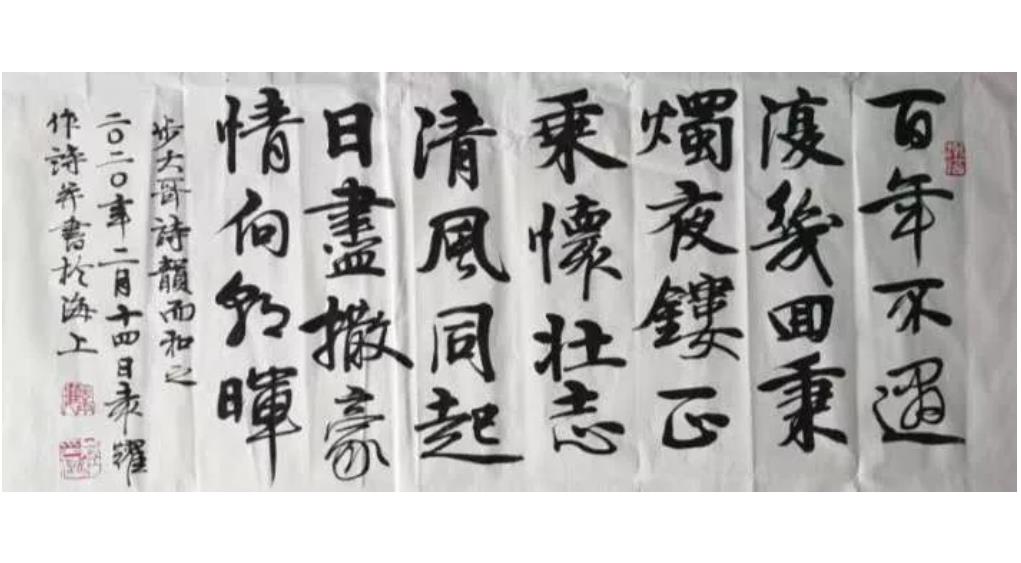 百年不過
復幾回秉
燭夜鏤正
乘懷壯志
清風同起
日盡撒豪
情向朝暉
步大哥詩韻而和之
二〇二〇年二月十四日袁耀
作詩并書於海上